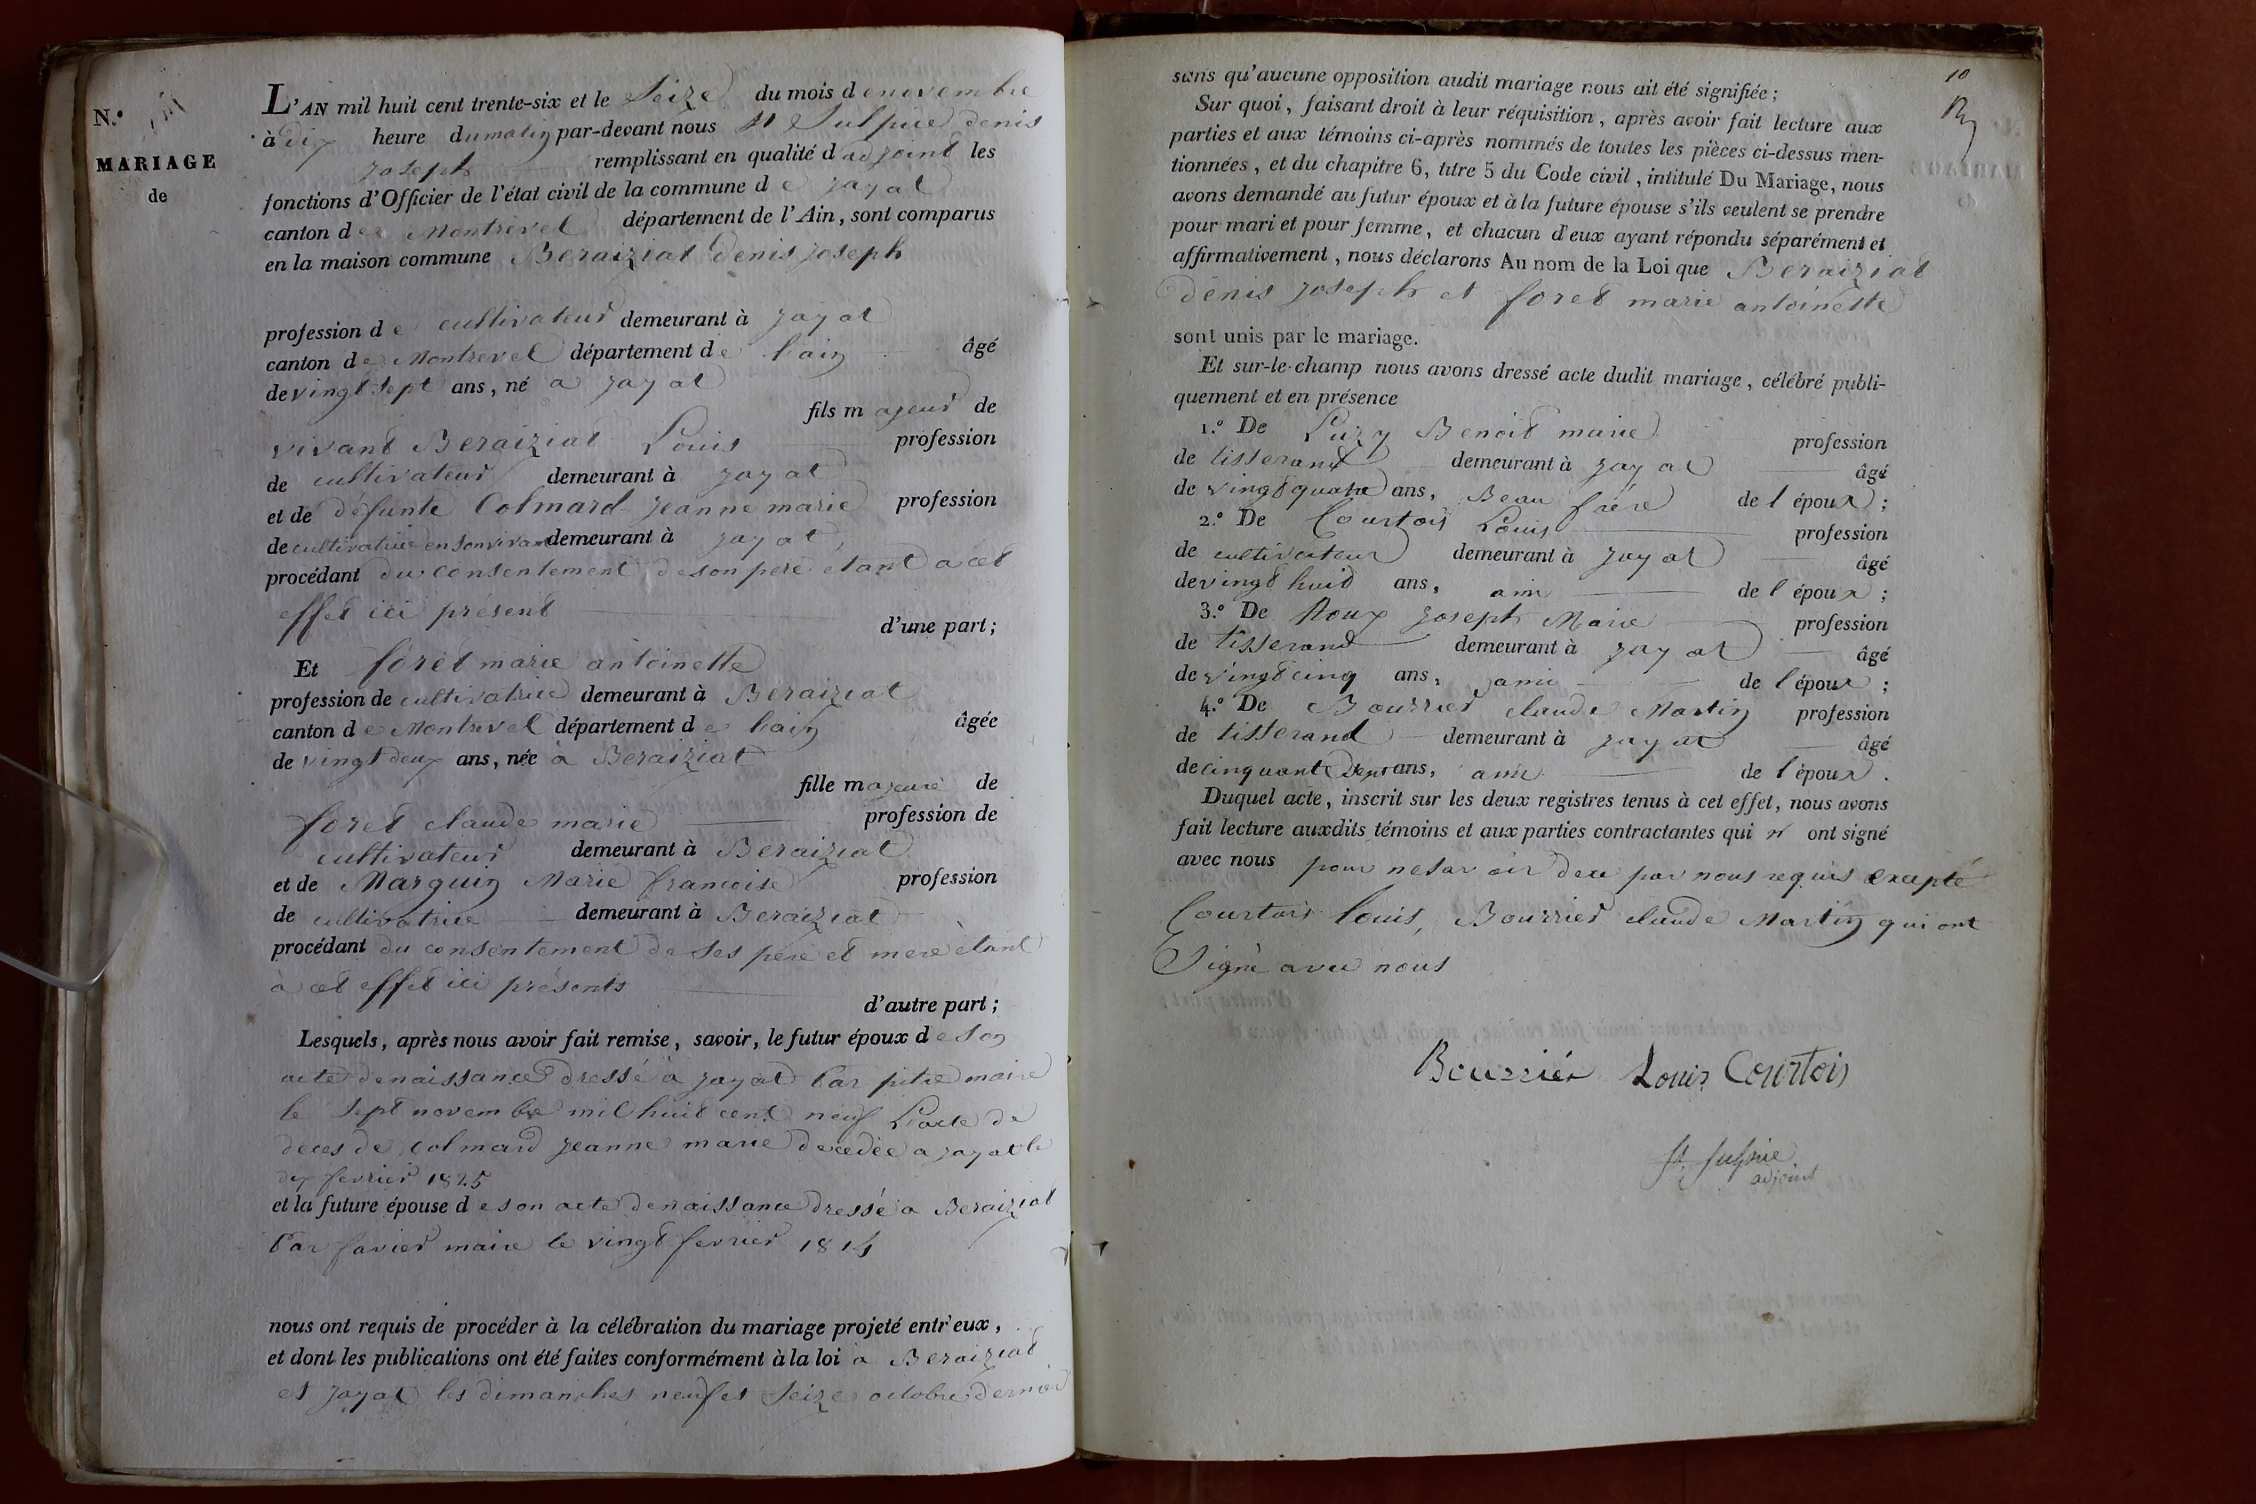 N.º
MARIAGE
de
L'AN mil huit cent trente-six et le Seize du mois de novembre
à dix heure du matin par-devant nous St Sulpice denis
joseph remplissant en qualité d'adjoint les
fonctions d'Officier de l'état civil de la commune de jayat
canton de Montrevel département de l'Ain, sont comparus
en la maison commune Beraiziat denis joseph
profession de cultivateur demeurant à jayat
canton de Montrevel département de l'ain âgé
de vingt sept ans, né a jayat
fils majeur de
vivant Beraiziat Louis profession
de cultivateur demeurant à jayat
et de défunte Colmard jeanne marie profession
de cultivatrice en son vivant demeurant à jayat,
procédant du consentement de son pere etant a cet
effet ici présent
d'une part;
Et foret marie antoinette
profession de cultivatrice demeurant à Beraiziat
canton de Montrevel département de l'ain âgée
de vingt deux ans, née à Beraiziat
fille majeure de
foret claude marie profession de
cultivateur demeurant à Beraiziat
et de Marguin Marie francoise profession
de cultivatrice demeurant à Beraiziat
procédant du consentement de ses pere et mere étant
à cet effet ici présents
d'autre part;
Lesquels, après nous avoir fait remise, savoir, le futur époux de son
acte de naissance dressé à jayat par maire
le sept novembre mil huit cent neuf L'acte de
deces de colmard jeanne marie decedée a jayat le
dix fevrier 1825
et la future épouse de son acte de naissance dressé a Beraiziat
Par favier maire le vingt fevrier 1814
nous ont requis de procéder à la célébration du mariage projeté entr'eux,
et dont les publications ont été faites conformément à la loi a Beraiziat
et jayat les dimanches neuf et seize octobre dernier
10
sans qu'aucune opposition audit mariage nous ait été signifiée;
Sur quoi, faisant droit à leur réquisition, après avoir fait lecture aux
parties et aux témoins ci-après nommés de toutes les pièces ci-dessus men-
tionnées, et du chapitre 6, titre 5 du Code civil, intitulé Du Mariage, nous
avons demandé au futur époux et à la future épouse s'ils veulent se prendre
pour mari et pour femme, et chacun d'eux ayant répondu séparément et
affirmativement, nous déclarons Au nom de la Loi que Beraiziat
denis joseph et foret marie antoinette
sont unis par le mariage.
Et sur-le-champ nous avons dressé acte dudit mariage, célébré publi-
quement et en présence
1.º De Luzy Benoit marie profession
de tisserand demeurant à jayat âgé
de vingt quatre ans, Beau frére de l'époux;
2.º De Courtois Louis profession
de cultivateur demeurant à jayat âgé
de vingt huit ans, ami de l'époux;
3.º De Roux joseph Marie profession
de tisserand demeurant à jayat âgé
de vingt cinq ans, ami de l'époux;
4.º De Bourrier claude Martin profession
de tisserand demeurant à jayat âgé
de cinquante sept ans, ami de l'époux.
Duquel acte, inscrit sur les deux registres tenus à cet effet, nous avons
fait lecture auxdits témoins et aux parties contractantes qui n' ont signé
avec nous pour ne savoir dece par nous requis excepté
Courtois Louis, Bourrier claude Martin qui ont
Signé avec nous
Bourrier Louis Courtois
St Sulpice
adjoint